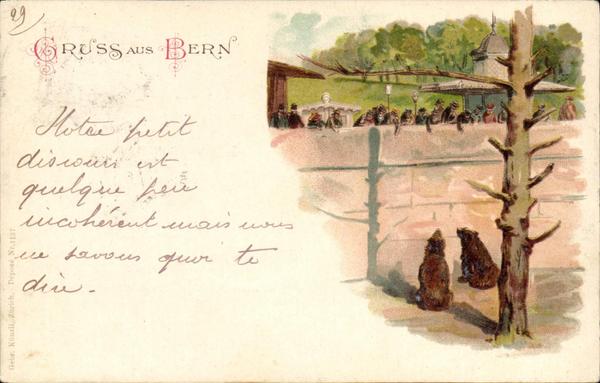 29
GRUSS AUS BERN
Notre petit
discours est
quelque peu
incohérent mais nous
ne savons quoi te
dire.
Gebr. Künzli, Zürich. Déposé Nr. 1137